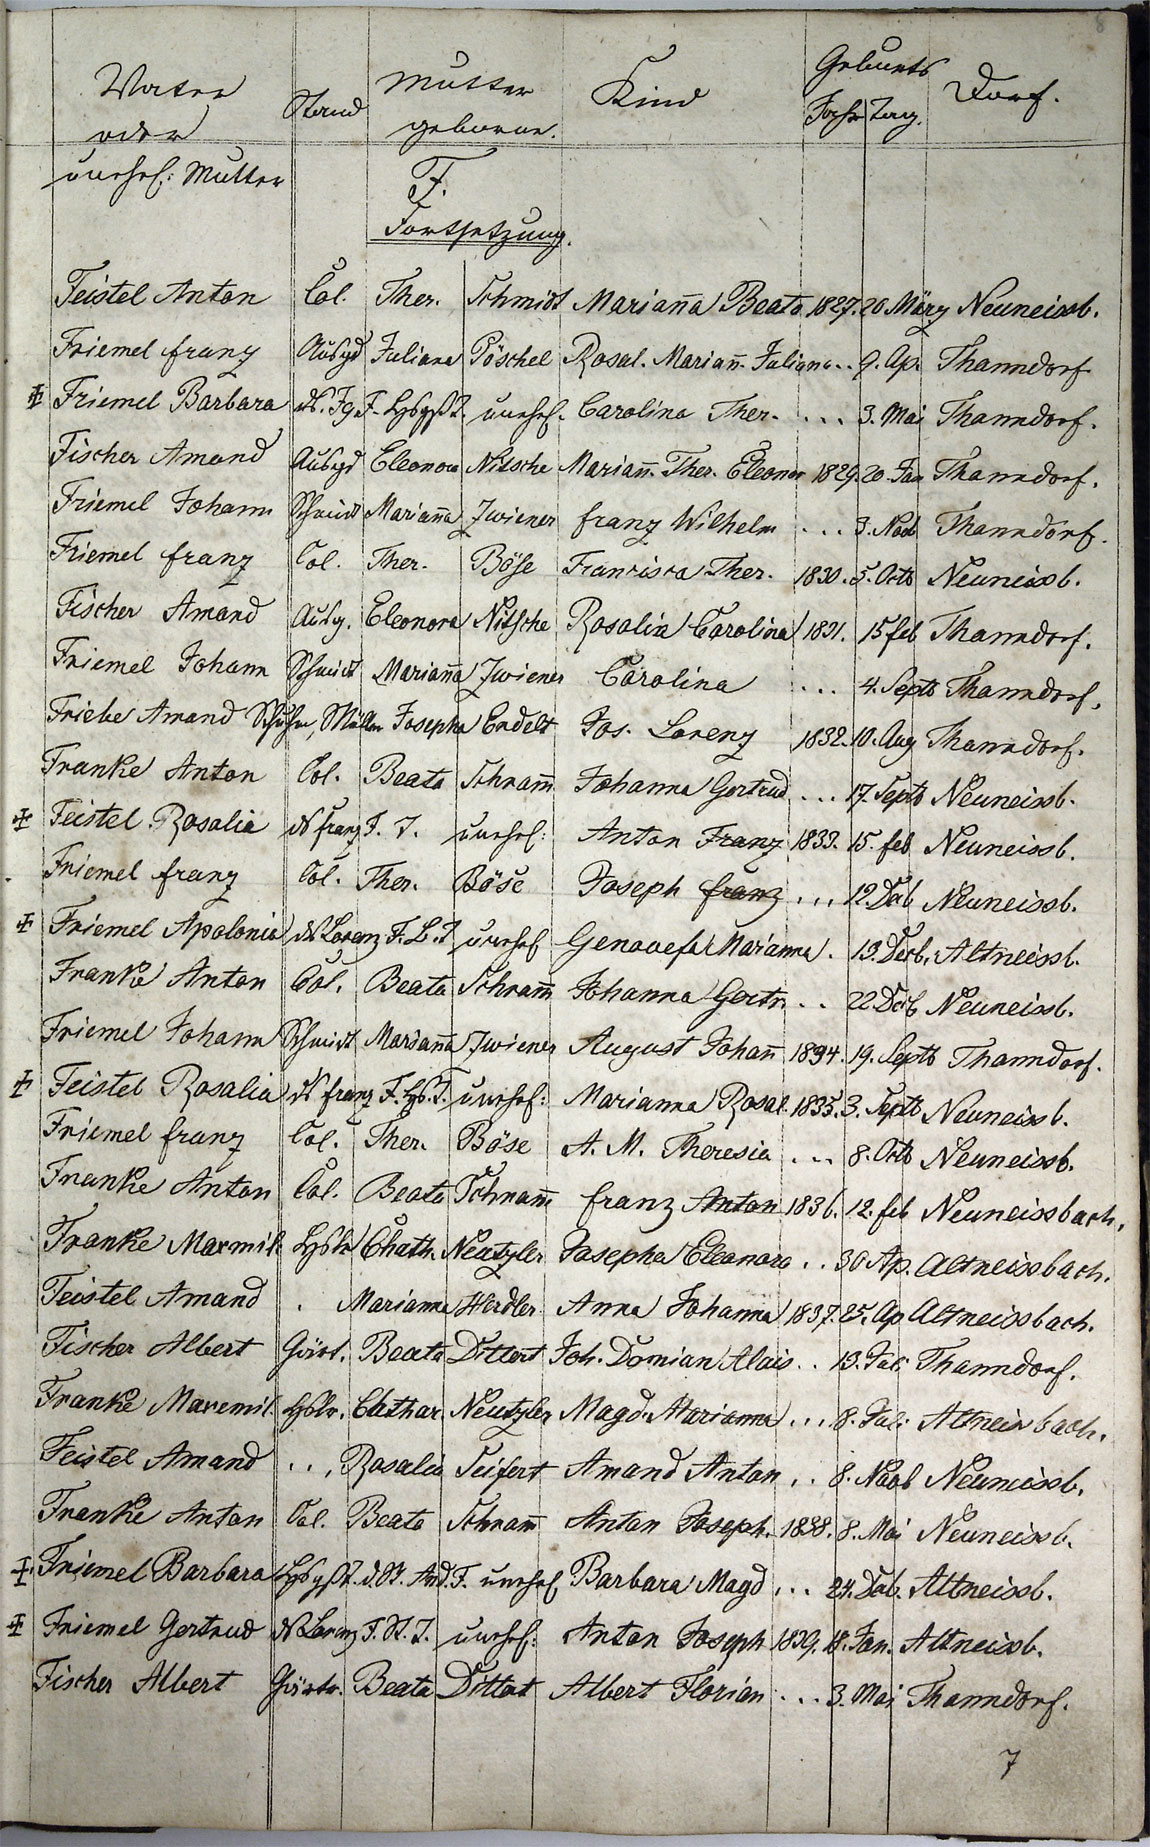 8
Vater oder unehel: Mutter Stand Mutter geborne. Kind Geburts Jahr Tag. Dorf.
F.
Fortsetzung.
Feistel Anton Col. Ther. Schmidt Marian̄a Beata 1827. 20 März Neuneissb.
Friemel Franz Ausgd Juliana Pöschel Rosal. Marian̄. Juliana .. 9. Ap. Thanndorf
Friemel Barbara unehel. Carolina Ther. ... 3. Mai Thanndorf.
Fischer Amand Ausgd Eleonora Nitsche Marian̄. Ther. Eleonor 1829. 20. Jan Thanndorf.
Friemel Johann Schmidt Marian̄a Zwiener Franz Wilhelm ... 3. Nov Thanndorf.
Friemel Franz Col. Ther. Böse Francisca Ther. 1830. 5. Octb Neuneissb.
Fischer Amand Ausg. Eleonora Nitsche Rosalia Carolina 1831. 15 feb Thanndorf.
Friemel Johann Schmidt Marian̄a Zwiener Carolina ... 4. Septb Thanndorf.
Friebe Amand Müller Josepha Erdelt Jos. Lorenz 1832. 10. Aug Thanndorf.
Franke Anton Col. Beata Schram̄ Johanna Gertrud ... 17. Septb Neuneissb.
Feistel Rosalia d. Franz F. T. unehel: Anton Franz 1833. 15. feb Neuneissb.
Friemel Franz Col. Ther. Böse Joseph Franz ... 12 Dcb Neuneissb.
Friemel Apolonia d. Lorenz F. unehel Genovefa Marianna . 13. Decb. Altneissb.
Franke Anton Col. Beata Schram̄ Johanna Gertr. .. 22 Dcb Neuneissb.
Friemel Johann Schmidt Marian̄a Zwiener August Johan̄ 1834. 19. Septb Thanndorf.
Feistel Rosalia d. Franz F. unehel: Marianna Rosal. 1835. 3. Septb Neuneissb.
Friemel Franz Col. Ther. Böse A. M. Theresia ... 8. Octb Neuneissb.
Franke Anton Col. Beata Schram̄ Franz Anton 1836. 12. feb Neuneissbach.
Franke Maxmil Hslr Chath. Neutzler Josepha Eleonora .. 30 Ap. Altneissbach.
Feistel Amand . Marianna Herdler Anna Johanna 1837. 25. Ap Altneissbach.
Fischer Albert Gärt. Beata Dittert Joh. Domian Alois .. 13. Juli Thanndorf.
Franke Maxemil. Hslr. Chathar. Neutzler Magd. Marianna ... 8. Juli Altneissbach.
Feistel Amand ... Rosalia Seifert Amand Anton .. 8. Novb Neuneissb.
Franke Anton Col. Beata Schram̄ Anton Joseph. 1838. 8. Mai Neuneissb.
Friemel Barbara unehel Barbara Magd ... 24. Dcb. Altneissb.
Friemel Gertrud d. Lorenz F. unehel: Anton Joseph 1839. 18. Jan. Altneissb.
Fischer Albert Gärtr. Beata Dittert Albert Florian ... 3. Mai Thanndorf.
7